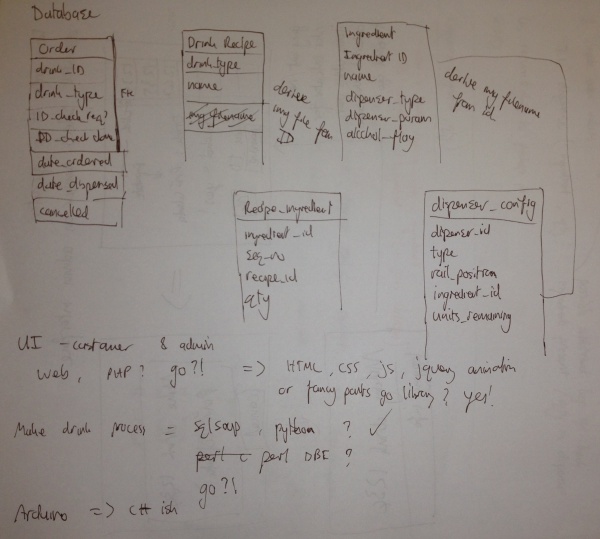 Database
Order
drink_ID
drink_type
ID_check_req?
ID_check done
date_ordered
date_dispensed
cancelled
FK
Drink Recipe
drink_type
name
derive
my file from
ID
Ingredient
Ingredient ID
name
dispenser_type
dispenser_param
alcohol_flag
derive my filename
from id
Recipe_ingredient
ingredient_id
seq_no
recipe_id
qty
dispenser_config
dispenser_id
type
rail_position
ingredient_id
units_remaining
UI - customer & admin
web, PHP? go?! => HTML, CSS, js, jquery animation
or fancy pants go library? yes!
Make drink process = sqlsoup, python ? ✓
perl c perl DBI ?
go?!
Arduino => C++ ish